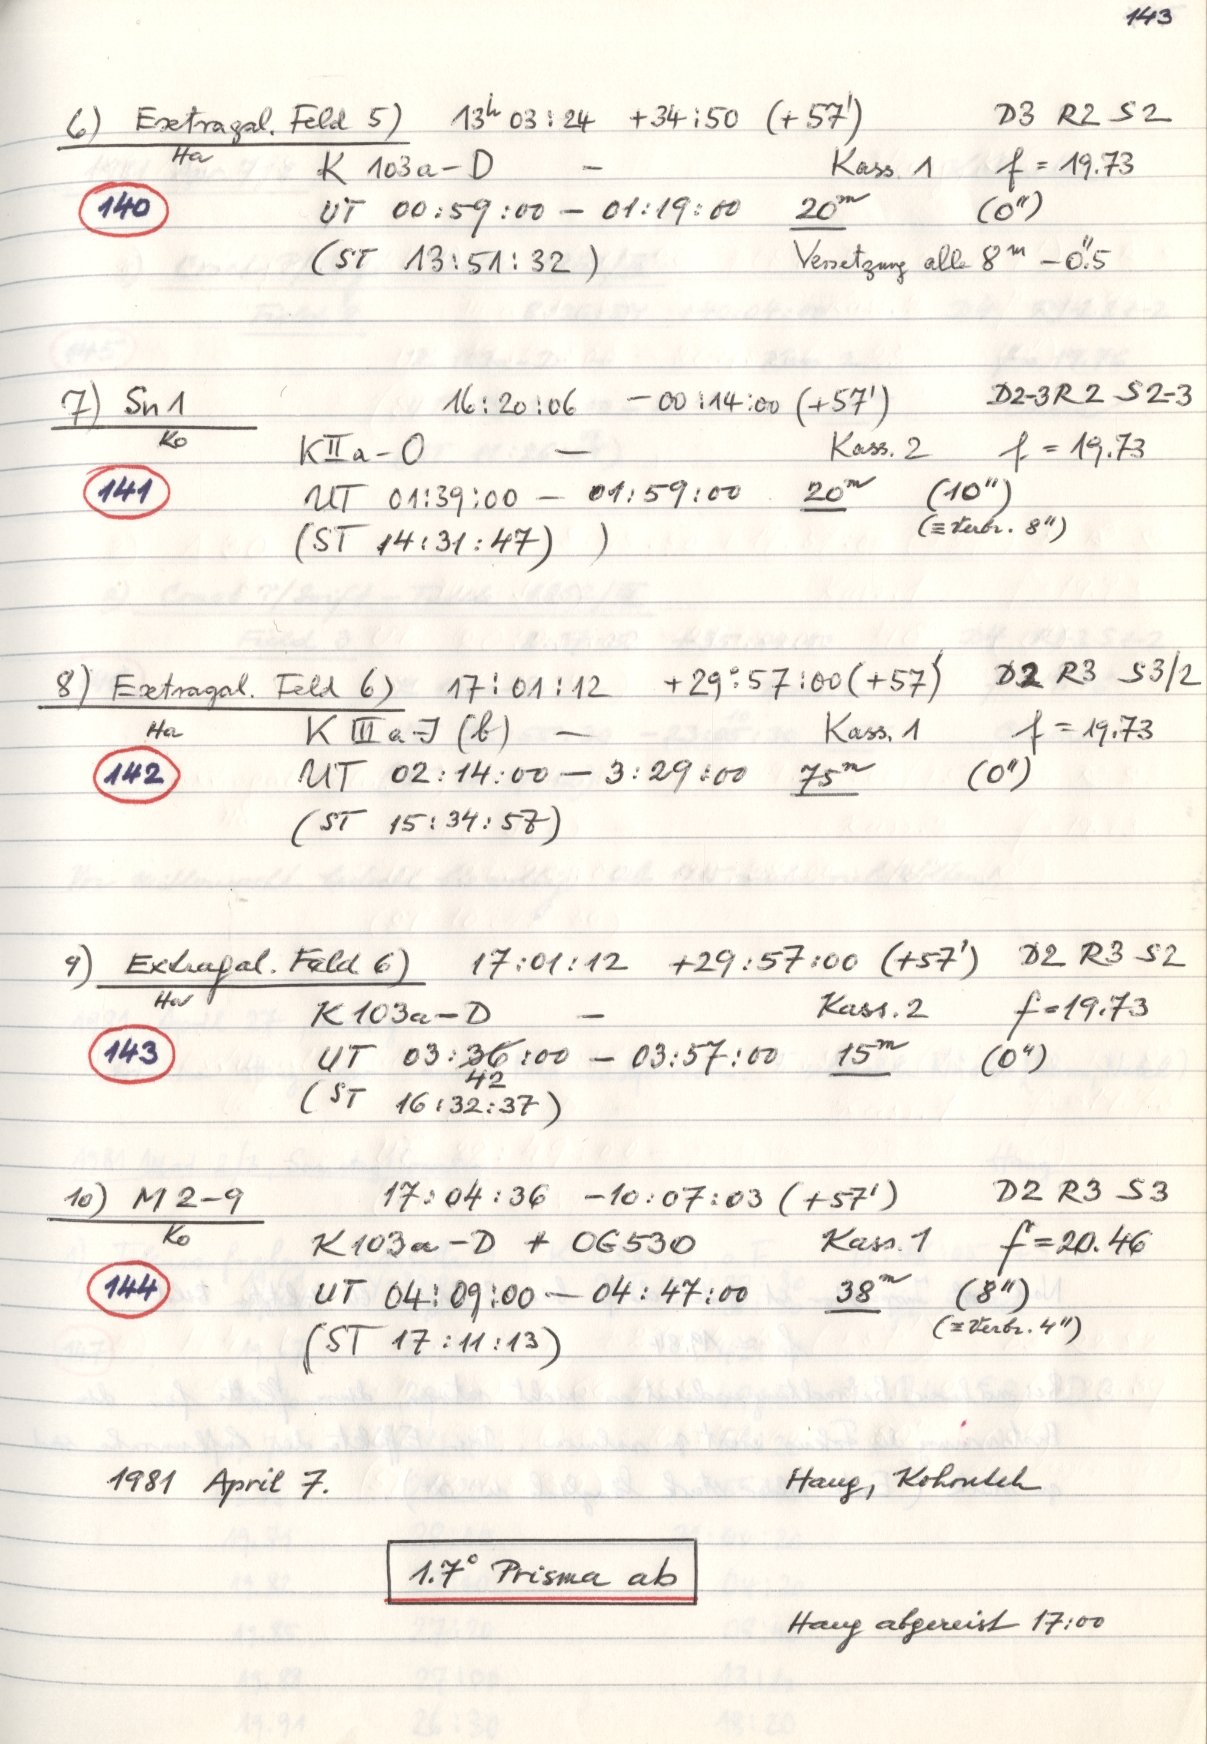 143
6) Extragal. Feld 5) 13h 03:24 +34:50 (+57') D3 R2 S2
Ha K 103a-D - Kass. 1 f = 19.73
140 UT 00:59:00 - 01:19:00 20m (0")
(ST 13:51:32) Versetzung alle 8m -0".5
7) Sn 1 16:20:06 -00:14:00 (+57') D2-3 R2 S2-3
Ko K II a-O - Kass. 2 f = 19.73
141 UT 01:39:00 - 01:59:00 20m (10")
(≡ Verbr. 8")
(ST 14:31:47) )
8) Extragal. Feld 6) 17:01:12 +29°:57:00 (+57') D2 R3 S3/2
Ha K III a-J (b) - Kass. 1 f = 19.73
142 UT 02:14:00 - 3:29:00 75m (0")
(ST 15:34:57)
9) Extragal. Feld 6) 17:01:12 +29:57:00 (+57') D2 R3 S2
Ha K 103a-D - Kass. 2 f = 19.73
143 UT 03:36:00 - 03:57:00 15m (0")
42
(ST 16:32:37)
10) M 2-9 17:04:36 -10:07:03 (+57') D2 R3 S3
Ko K 103a-D + OG530 Kass. 1 f = 20.46
144 UT 04:09:00 - 04:47:00 38m (8")
(≡ Verbr. 4")
(ST 17:11:13)
1981 April 7. Haug, Kohoutek
1.7° Prisma ab
Haug abgereist 17:00